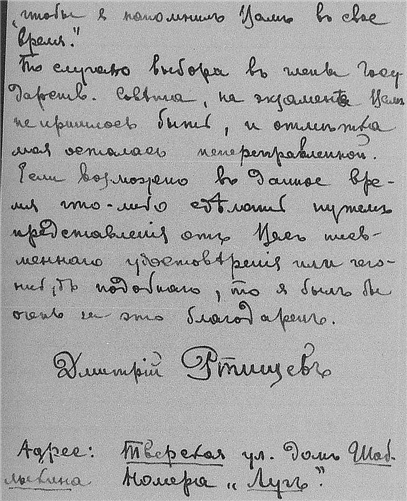 "чтобы я напомнилъ Вамъ въ свое
время."
По случаю выбора въ члены Госу-
дарств. Совѣта, на экзаменѣ Вамъ
не пришлось быть, и отмѣтка
моя осталась непереправленной.
Если возможно въ данное вре-
мя что-либо сдѣлать путемъ
представленія отъ Васъ пись-
меннаго удостовѣренія или чего-
нибудь подобнаго, то я былъ бы
очень за это благодаренъ.
Дмитрій Ртищевъ
Адрес: Тверская ул. домъ Шаб-
лыкина Номера „Лугъ".